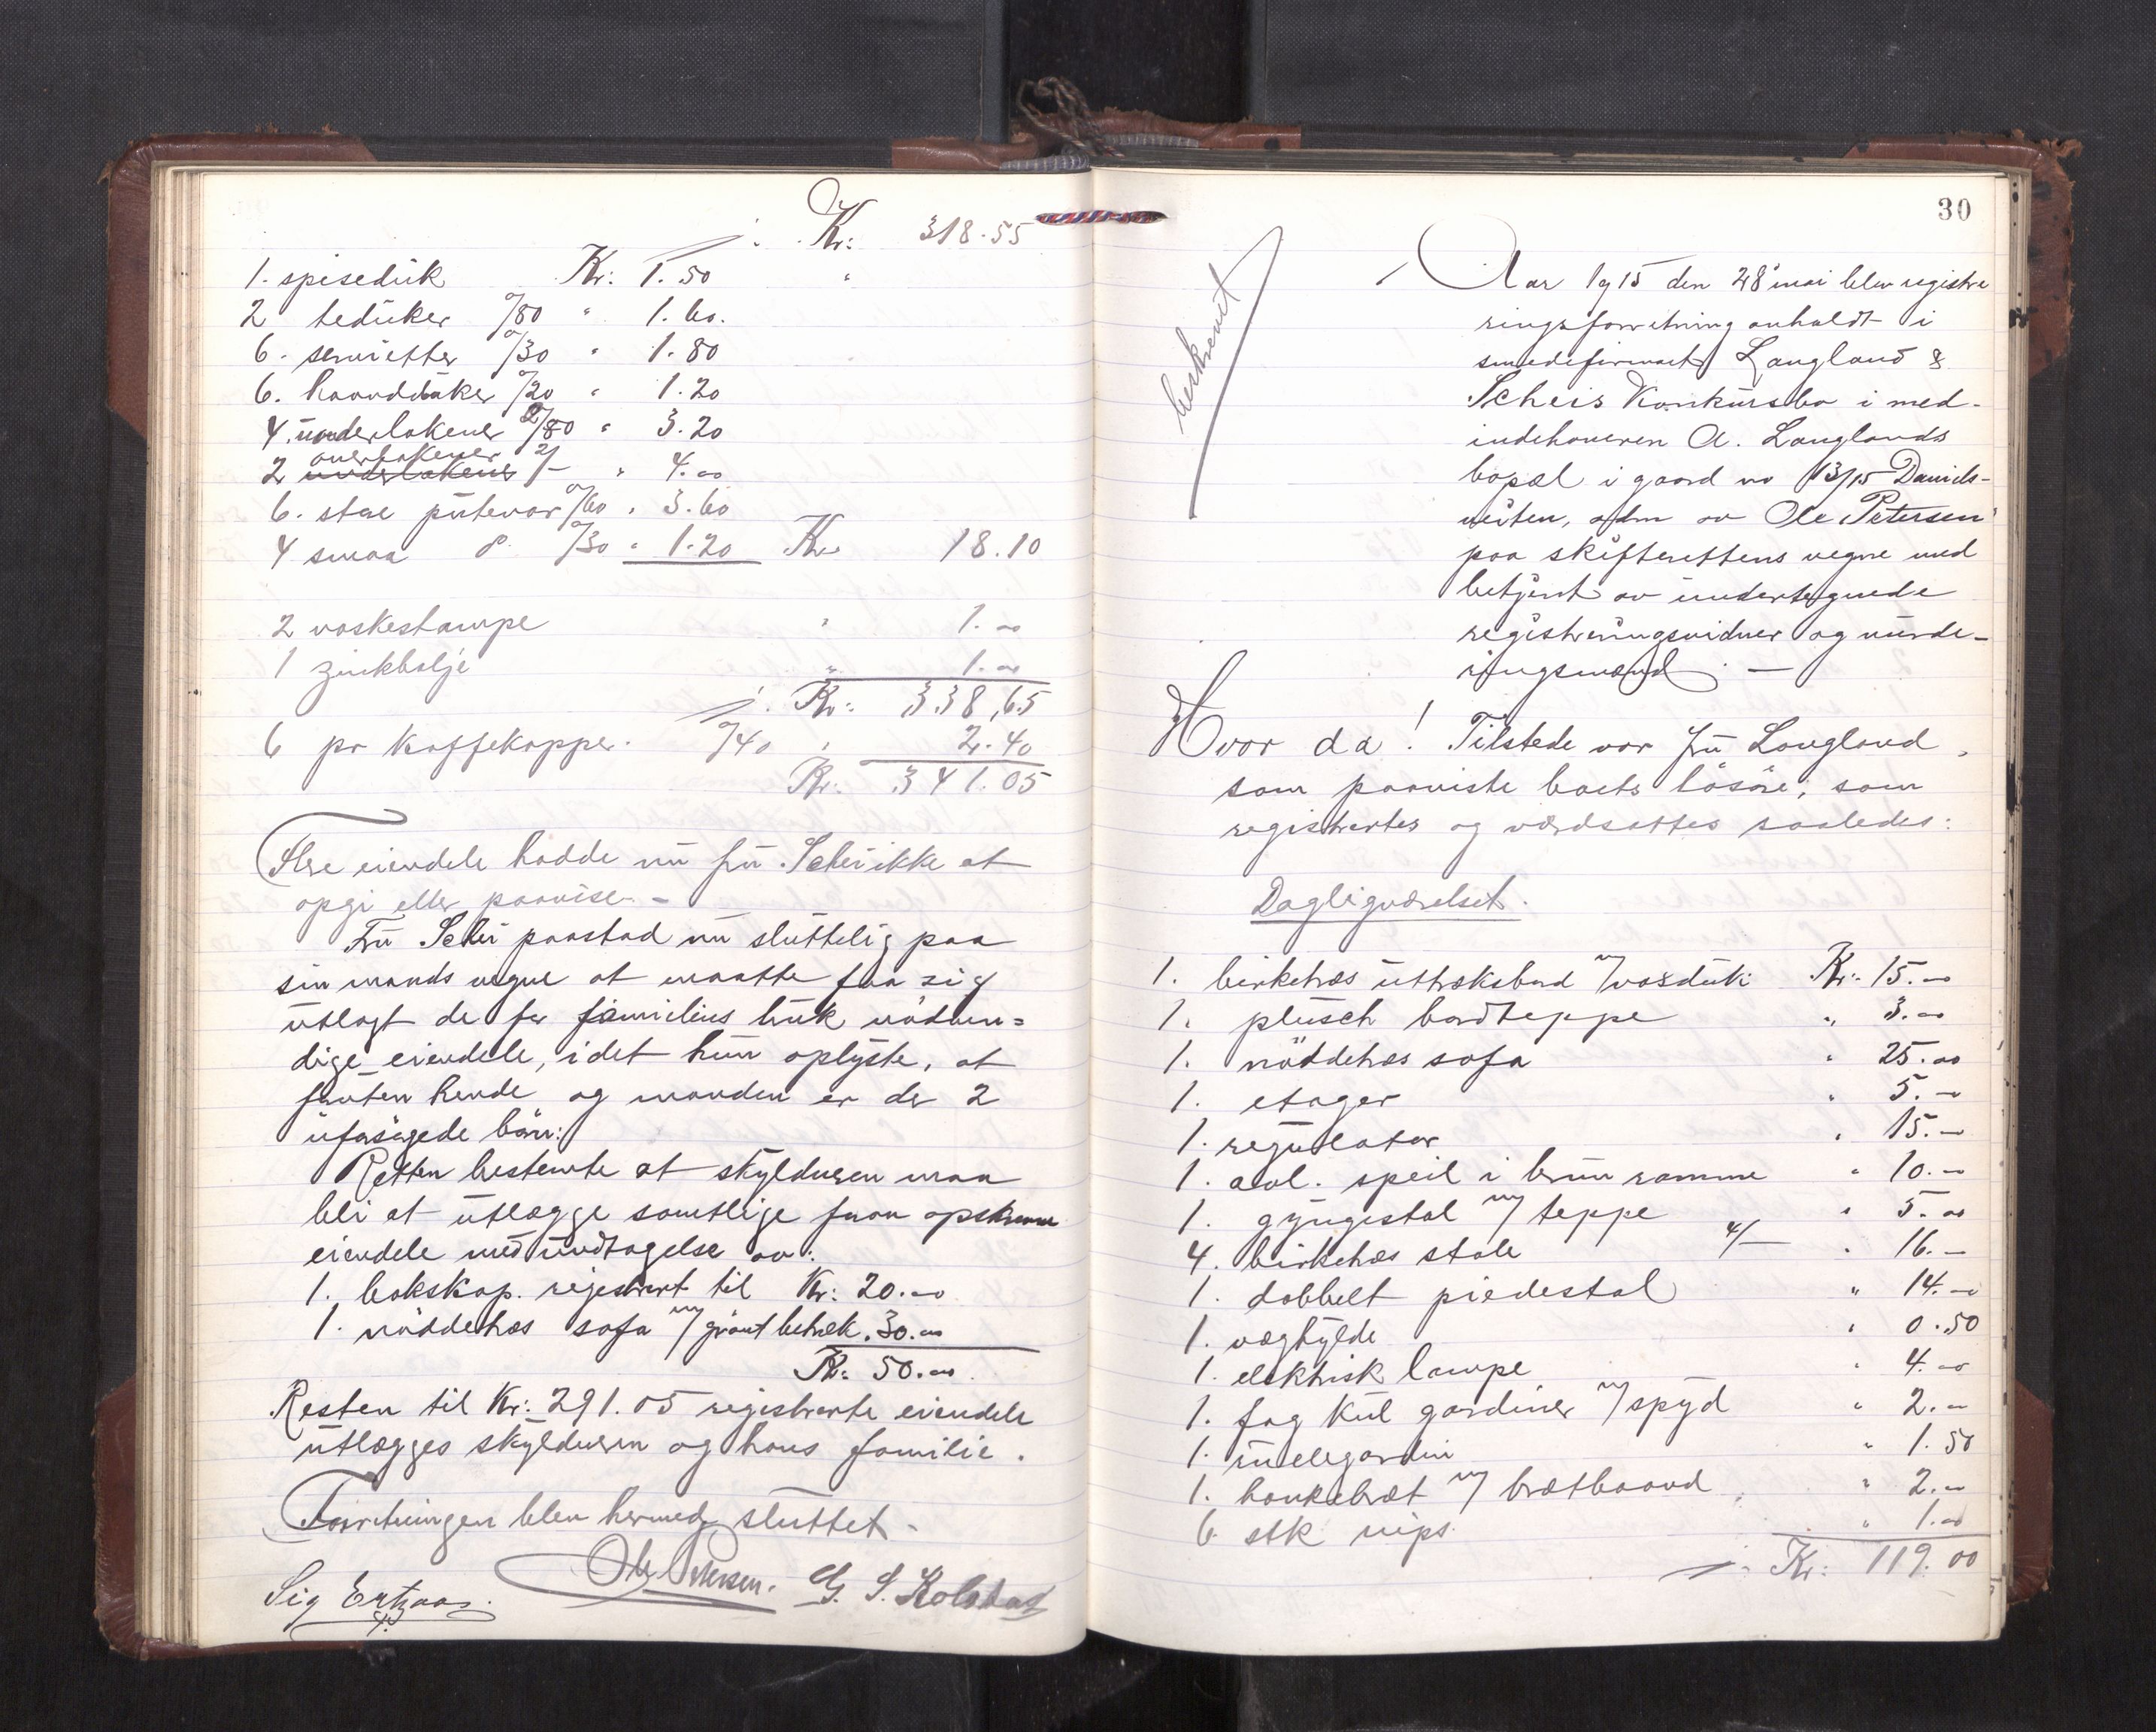 /: Kr: 318.55
1. spiseduk Kr: 1.50 "
2 teduker a/80 " 1.60.
6. servietter a/30 " 1.80
6. haandduker a/20 " 1.20
4. underlakener a/80 " 3.20
2 overlakener underlakener 2/- " 4.00
6. store putevar a/60 " 3.60
4 smaa do. a/30 " 1.20 Kr 18.10
2 vaskestampe " 1.00
1 zinkbalje " 1.00
/: Kr: 338,65
6 pr kaffekopper. a/40 " 2.40
Kr: 341.05
Flere eiendele hadde nu fru Schei ikke at
opgi eller paavise. -
Fru Schei paastod nu sluttelig paa
sin mands vegne at maatte faa sig
utlagt de for familiens bruk nødven=
dige eiendele, idet hun oplyste, at
foruten hende og manden er der 2
uforsørgede børn:
Retten bestemte at skyldneren maa
bli at utlægge samtlige foran opskrevne
eiendele med undtagelse av:
1. bokskap. registrert til Kr: 20.00
1. nøddetræs sofa m/ grønt betræk. 30.00
Kr: 50.00.
Resten til Kr: 291.05 registrerte eiendele
utlægges skyldneren og hans familie.
Forretningen blev hermed sluttet.
Ole Petersen. G. S. Kolstad
Sig
30
Aar 1915 den 28 mai blev registre
ringsforretning anholdt i
smedefirmaet Langland &
Scheis Konkursbo i med-
indehaveren A. Langlands
bopæl i gaard no 13/15 Davids-
veiten, adm av Ole Petersen
paa skifterettens vegne med
betjent av undertegnede
registreringsvidner og vurde-
ringsmænd. -
beskrevet
Hvor da! Tilstede var fru Langland,
som paaviste boets løsøre, som
registrertes og værdsattes saaledes:
Dagligværelset.
1. birketræs uttræksbord m/voxduk Kr: 15.00
1. plusch bordteppe " 3.00
1. nøddetræs sofa " 25.00
1. etager " 5.-
1. regulator " 15.-
1. avl. speil i brun ramme " 10.-
1. gyngestol m/ teppe " 5.00
4. birketræs stole 4/- " 16.-
1. dobbelt piedestal " 14.-
1. væghylde " 0.50
1. elektrisk lampe " 4.00
1. fag kul gardiner m/spyd " 2.00
1. rullegardin " 1.50
1. bankebræt m/ brætbaand " 2.00
6 stk nips. " 1.00
/: Kr: 119.00